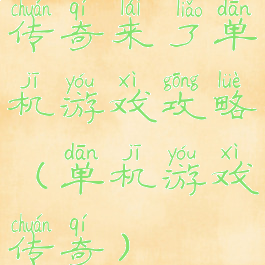 chuán qí lái liǎo dān
传奇来了单
jī yóu xì gōng lüè
机游戏攻略
dān jī yóu xì
（单机游戏
chuán qí
传奇）